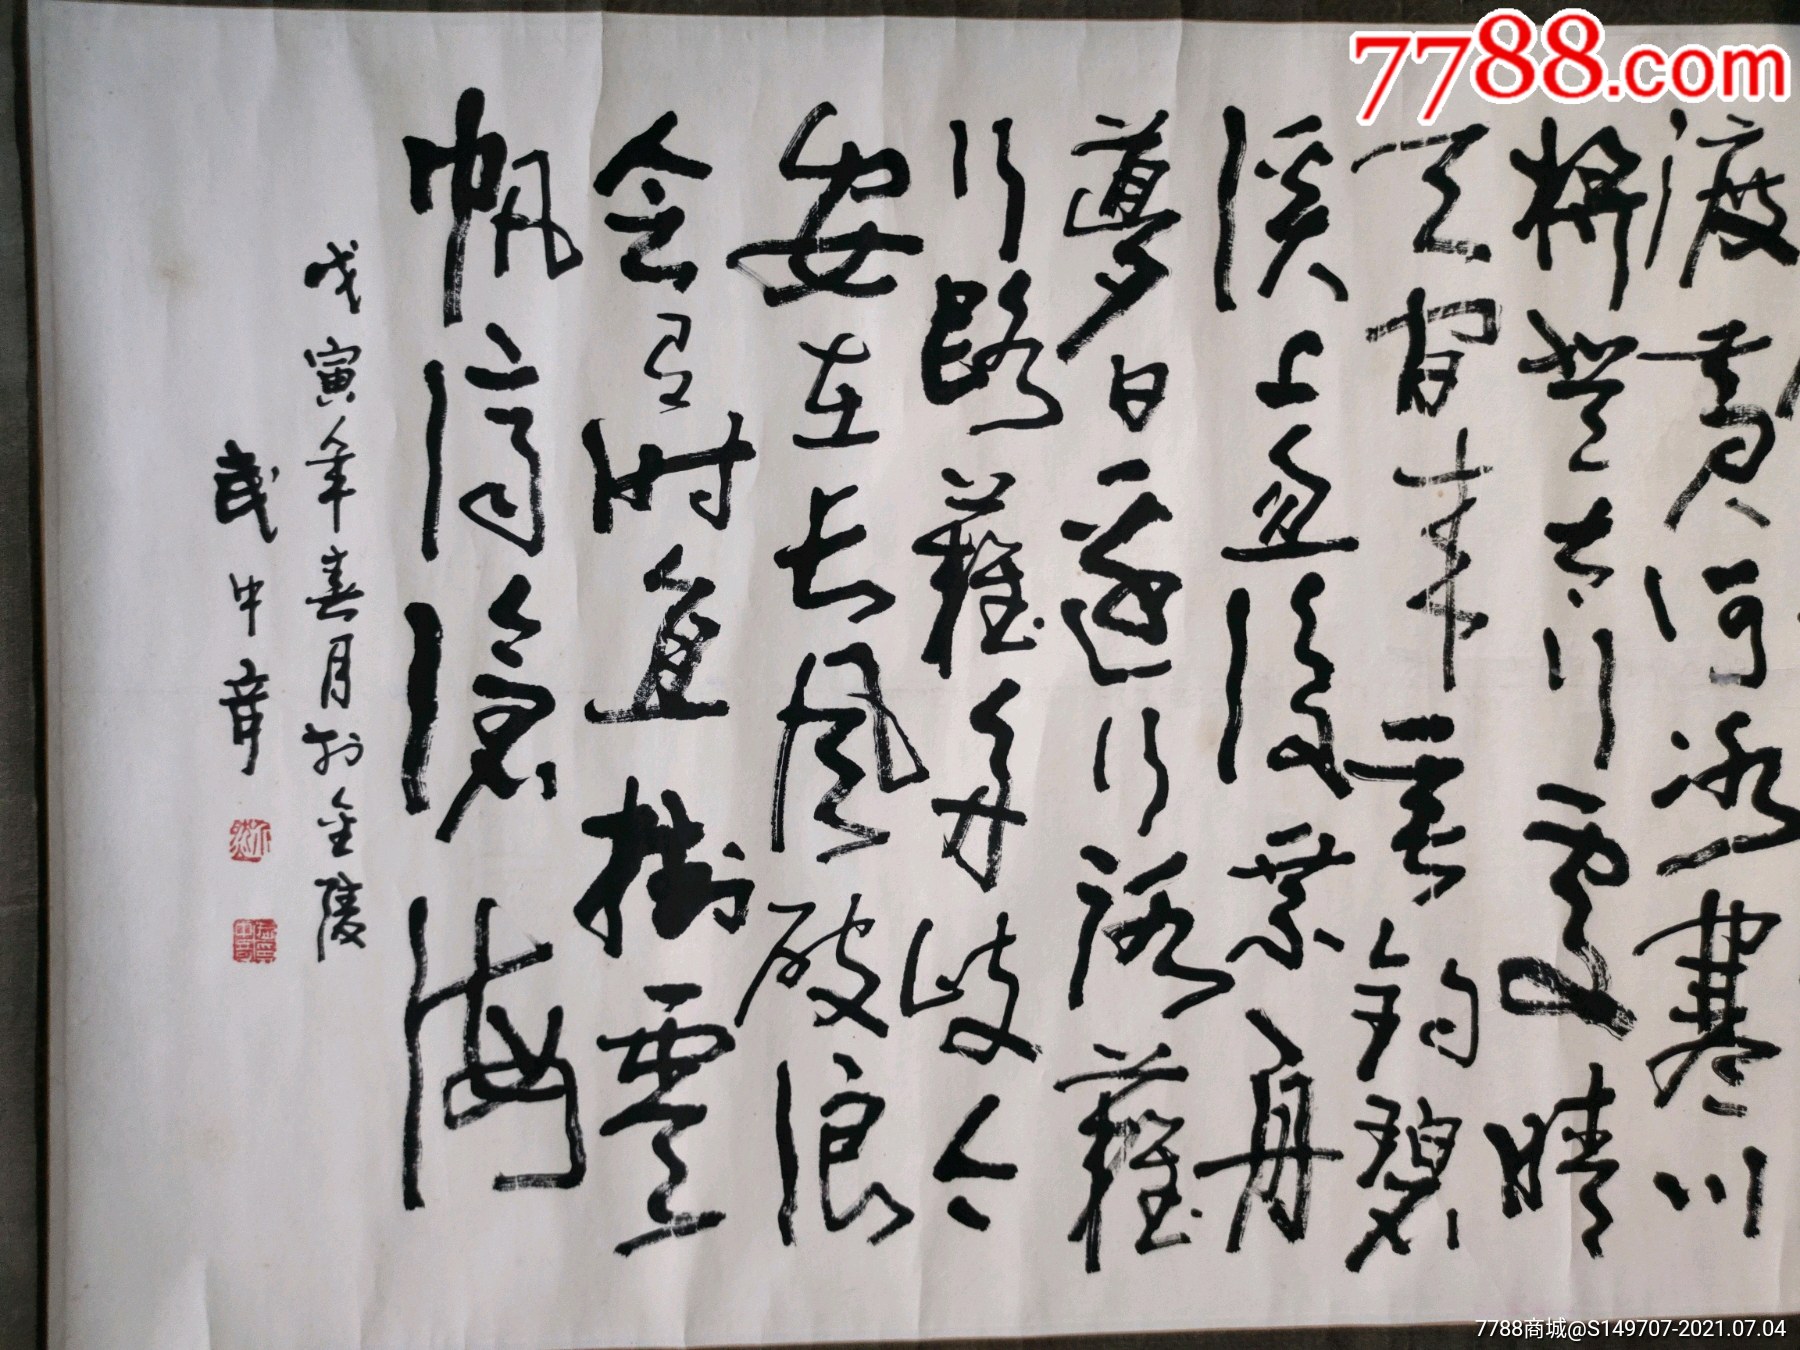 7788.com
渡黄河冰塞川
將登太行雪晴
天閒来垂钓碧
溪上忽復乘舟
夢日邊行路難
行路難多歧今
安在长风破浪
会有时直掛雲
帆濟滄海
戊寅年春月於金陵
武中奇
7788商城@S149707-2021.07.04